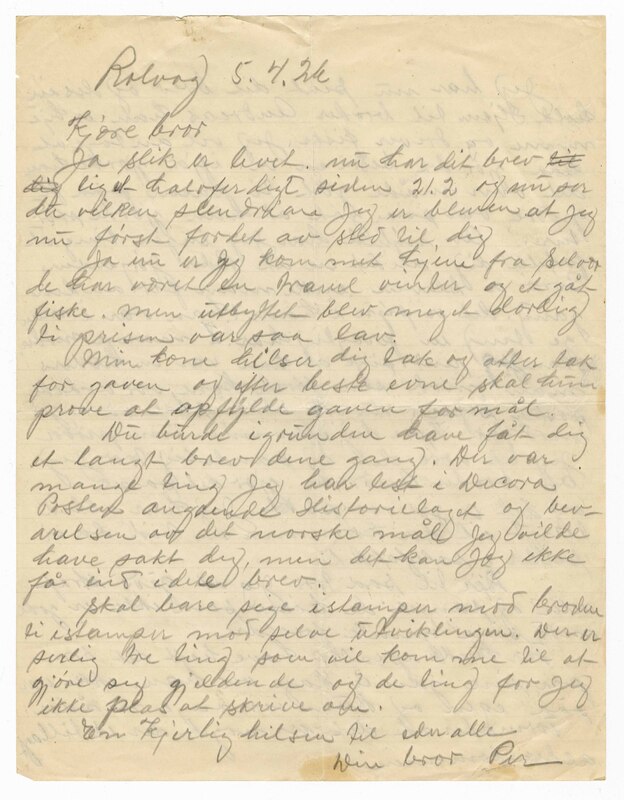 Rolvog 5.4.26
Kjöre bror
Ja slik er levet. nu har dit brev til
dig liget halvferdigt siden 21.2 og nu ser
du vilken slendrian jeg er bleven at jeg
nu först fordet av sted til dig
Ja nu er jeg kom met hjem fra
de har været en travel vinter og et gåt
fiske. men utbyttet blev meget dorlig
ti prisen var saa lav.
Min kone hilser dig tak og atter tak
for gaven og efter beste evne skal hun
prove at opfylde gaven formål.
Du burde igrunden have fåt dig
et langt brev dene gang. Der var
mange ting jeg har lest i Decora
Posten angaende Historielaget og bev-
arelsen av det norske mål jeg vilde
have sakt dig, men det kan jeg ikke
få ind i dete brev.
Skal bare sige i stamper mod broden
ti i stamper mod selve utviklingen. Der er
serlig tre ting som vil komme til at
gjöre seg gjeldende og de ting for jeg
ikke plas at skrive om.
En Kjerlig hilsen til eder alle
Din bror Per